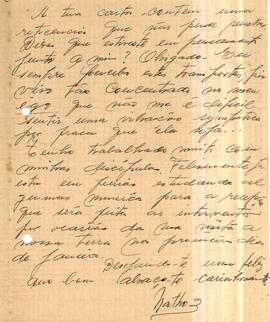 A tua carta contem uma
reticencia que não pude
Dizes que estiveste em pensamento
junto a mim? Obrigado. Eu
sempre percebo estes transportes, pois
vivo tão concentrado no meu
ego que não me é dificil
sentir uma vibração sympathica
por fraca que ela seja...
Tenho trabalhado muito com
minhas discipulas. Felizmente já
estou em ferias estudando al
gumas musicas para a recepção
que será feita ao interventor
por occasião da sua visita á
nossa terra nos primeiros dias
de janeiro.
Desejando-te um feliz
anno bom abraço-te carinhosamente